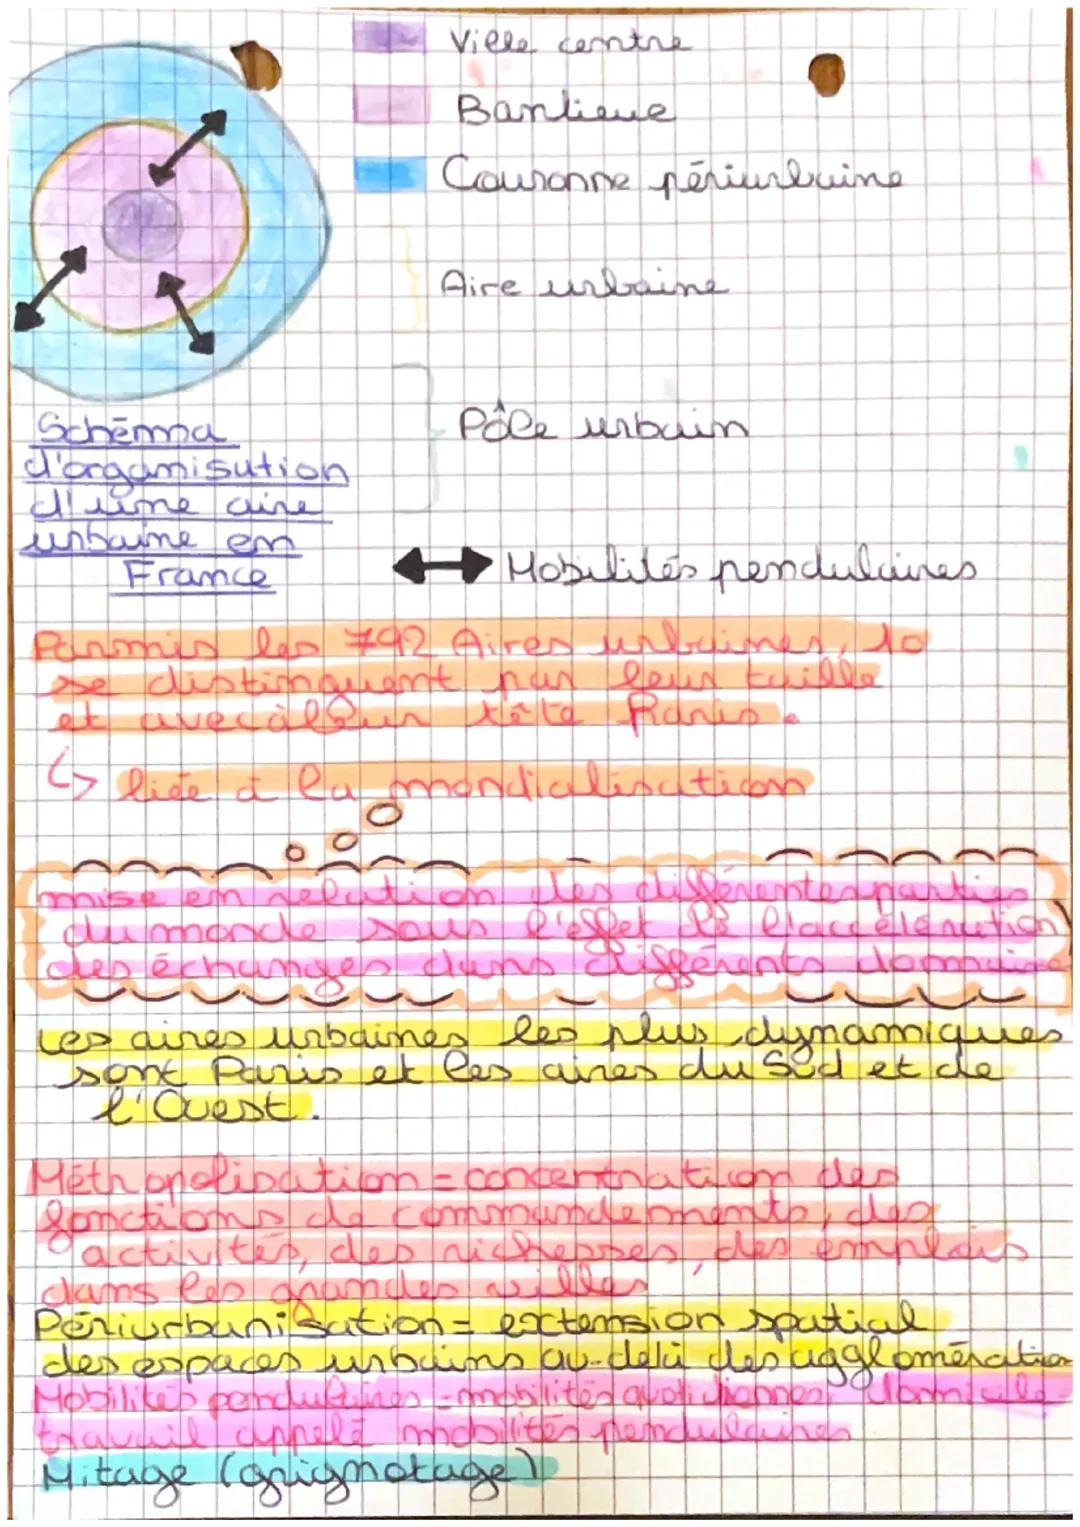 Ville centre
Banlieue
Couronne périurbaine
Aire urbaine
Pôle urbain
Schéma
d'organisation
d'une aire
urbaine en
France
Mobilités pendulaires
Parmis les 792 Aires urbaines, 10
se distinguent par leur taille
et avec à leur tête Paris.
↳ liée à la mondialisation
mise en relation des différentes parties
du monde sous l'effet de l'accélération
des échanges dans différents domaine
Les aires urbaines les plus dynamiques
sont Paris et les aires du Sud et de
l'Ouest.
Méthropolisation = concentration des
fonctions de commandements, des
activités, des richesses, des emplois
dans les grandes villes
Périurbanisation = extension spatial
des espaces urbains au-delà des agglomération
Mobilités pendulaires = mobilités quotidiennes domicile
travail appelé mobilités pendulaires
Mitage (grignotage)